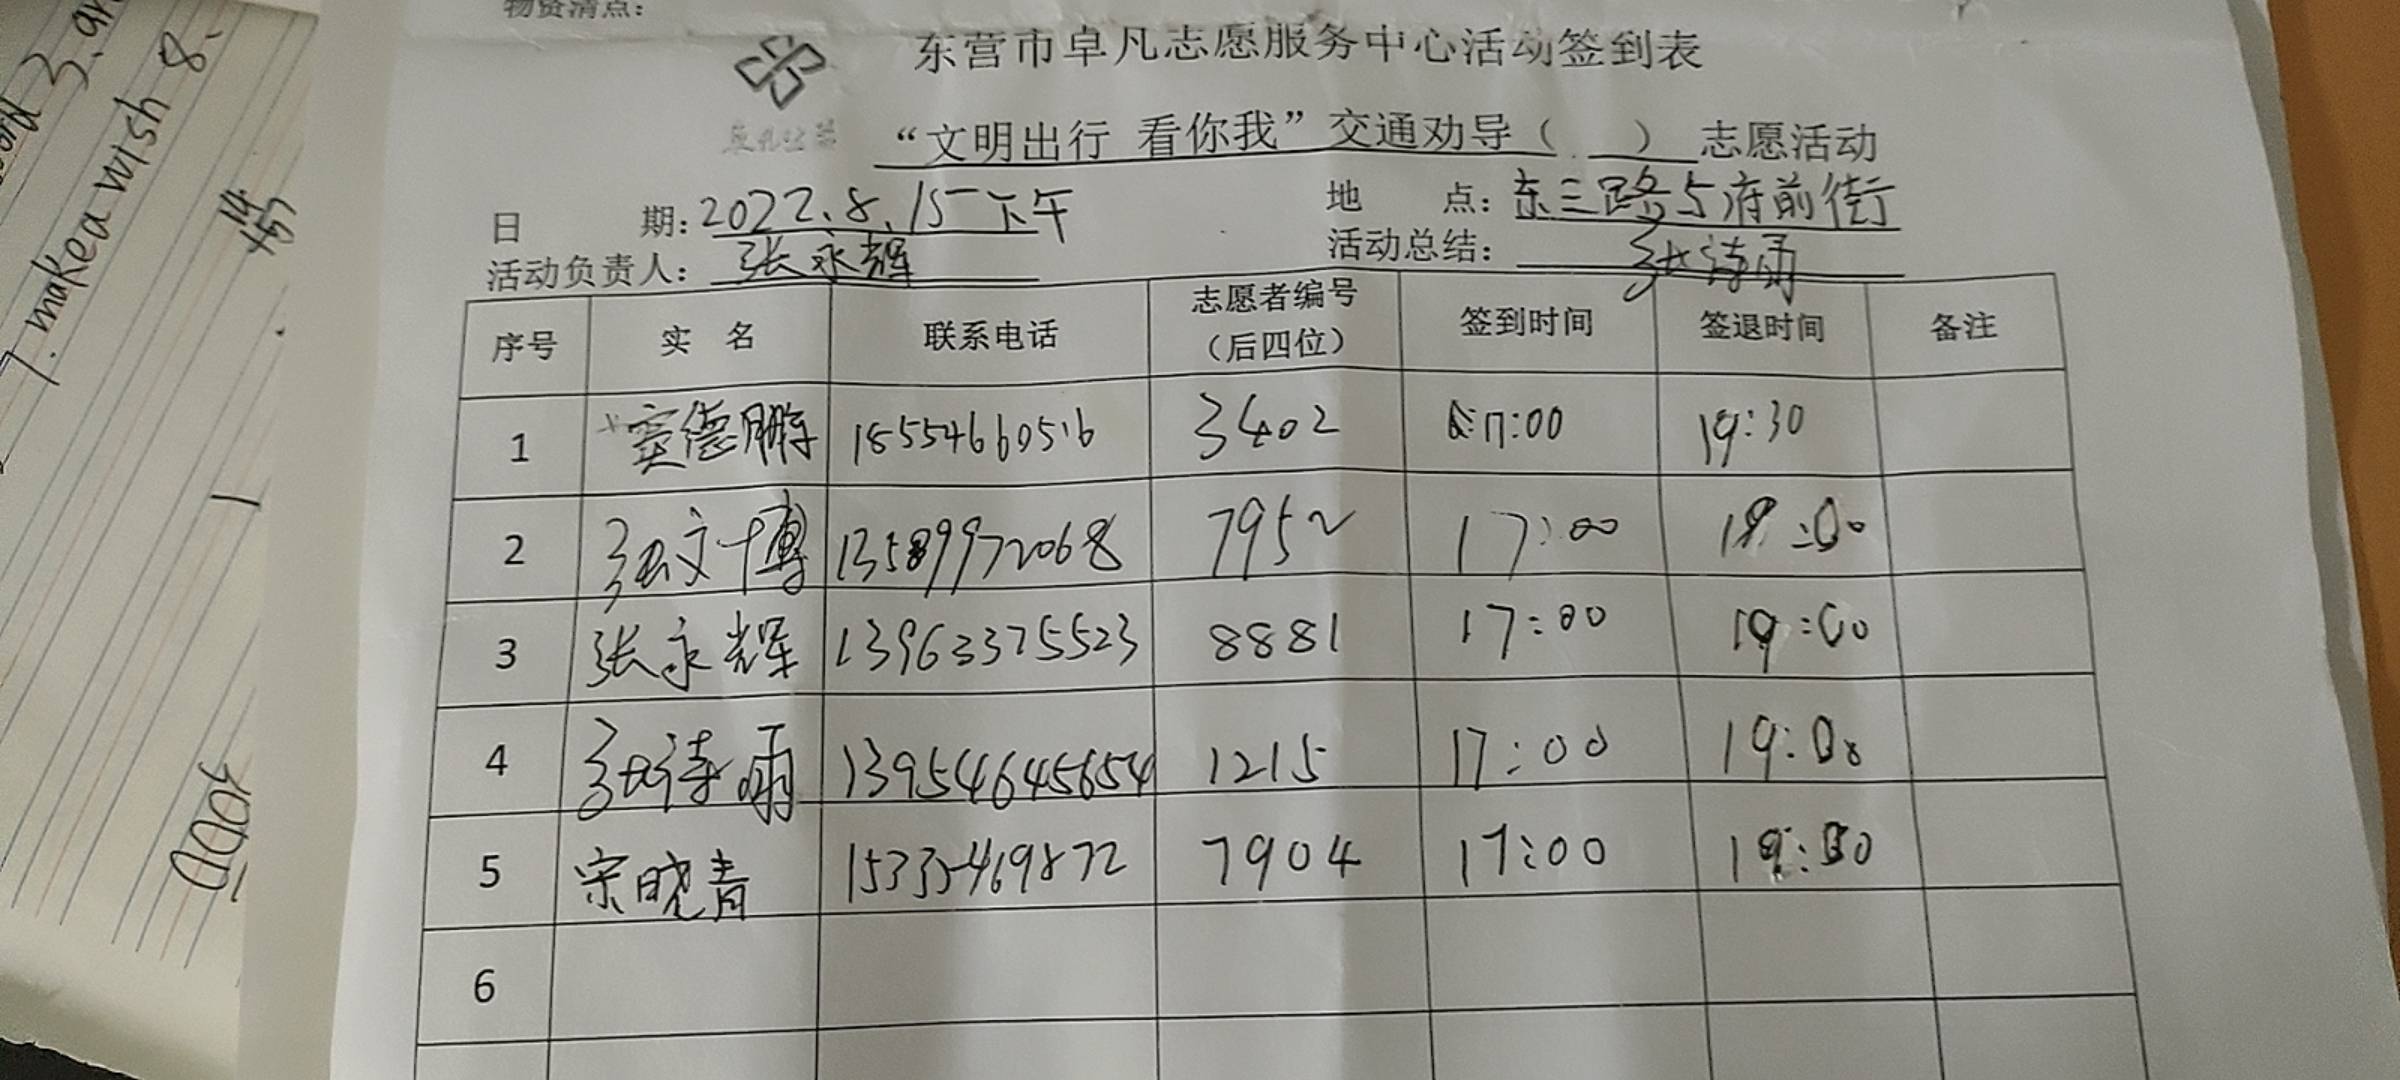 物资清点：
东营市卓凡志愿服务中心活动签到表
“文明出行 看你我”交通劝导（ ）志愿活动
日 期：2022.8.15下午 地 点：东三路与府前街
活动负责人：张永辉 活动总结：张诗雨
序号 实 名 联系电话 志愿者编号（后四位） 签到时间 签退时间 备注
1 窦德鹏 18554660516 3402 17:00 19:30
2 张文博 13589972068 7952 17:00 19:00
3 张永辉 13963375523 8881 17:00 19:00
4 张诗雨 13954645654 1215 17:00 19:00
5 宋晓青 7904 17:00
6
7. make a wish 8.
3000